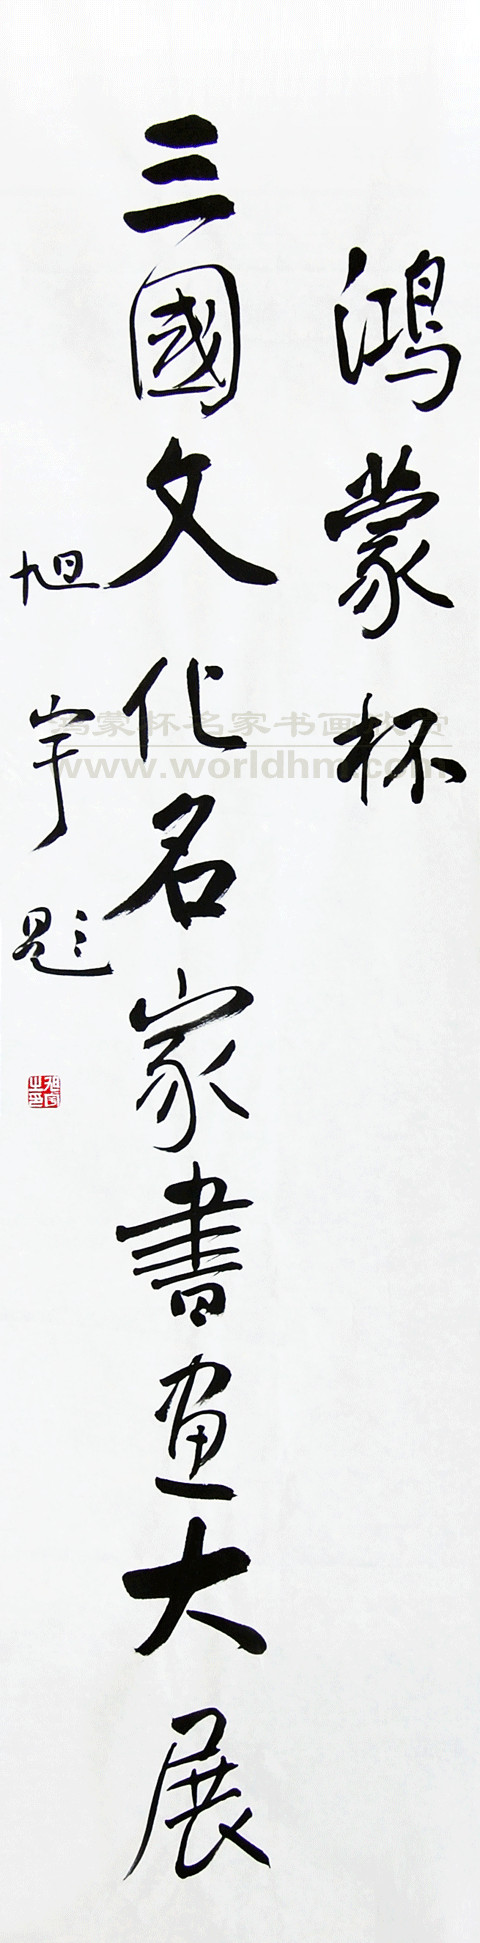 鴻蒙杯
三國文化名家書画大展
旭宇題
旭宇之印
鸿蒙杯名家书画
www.worldhm.com